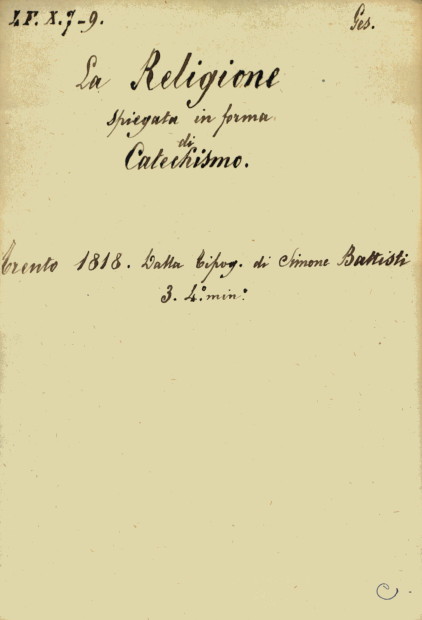 I F. X. 7-9. Ges.
La Religione
spiegata in forma
di
Catechismo.
Trento 1818. Dalla Tipog. di Simone Battisti
3. 4.° min.°
C